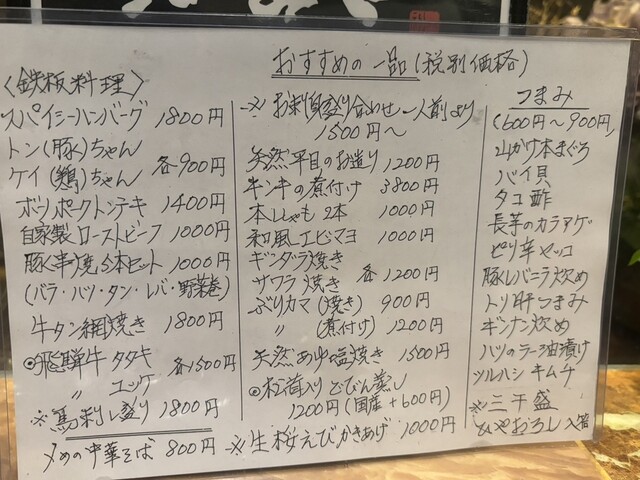 おすすめの一品(税別価格)
<鉄板料理>
スパイシーハンバーグ 1800円
トン(豚)ちゃん
ケイ(鶏)ちゃん 各900円
ポークトンテキ 1400円
自家製ローストビーフ 1000円
豚串焼5本セット 1000円
(バラ・ハツ・タン・レバ・野菜巻)
牛タン網焼き 1800円
◎飛騨牛タタキ 各1500円
〃 ユッケ
※馬刺し盛り 1800円
〆めの中華そば 800円
※お刺身盛り合わせ一人前より
1500円~
天然平目のお造り 1200円
キンキの煮付け 3800円
本ししゃも2本 1000円
和風エビマヨ 1000円
ギンダラ焼き
サワラ焼き 各1200円
ぶりカマ(焼き) 900円
〃 (煮付け) 1200円
天然あゆ塩焼き 1500円
◎松茸入りどびん蒸し
1200円(国産+600円)
※生桜えびかきあげ 1000円
つまみ
(600円~900円)
山かけ本まぐろ
バイ貝
タコ酢
長芋のカラアゲ
ピリ辛ヤッコ
豚レバニラ炒め
トリ肝つまみ
ギンナン炒め
ハツのラー油漬け
ツルハシキムチ
※三千盛
ひやおろし入荷